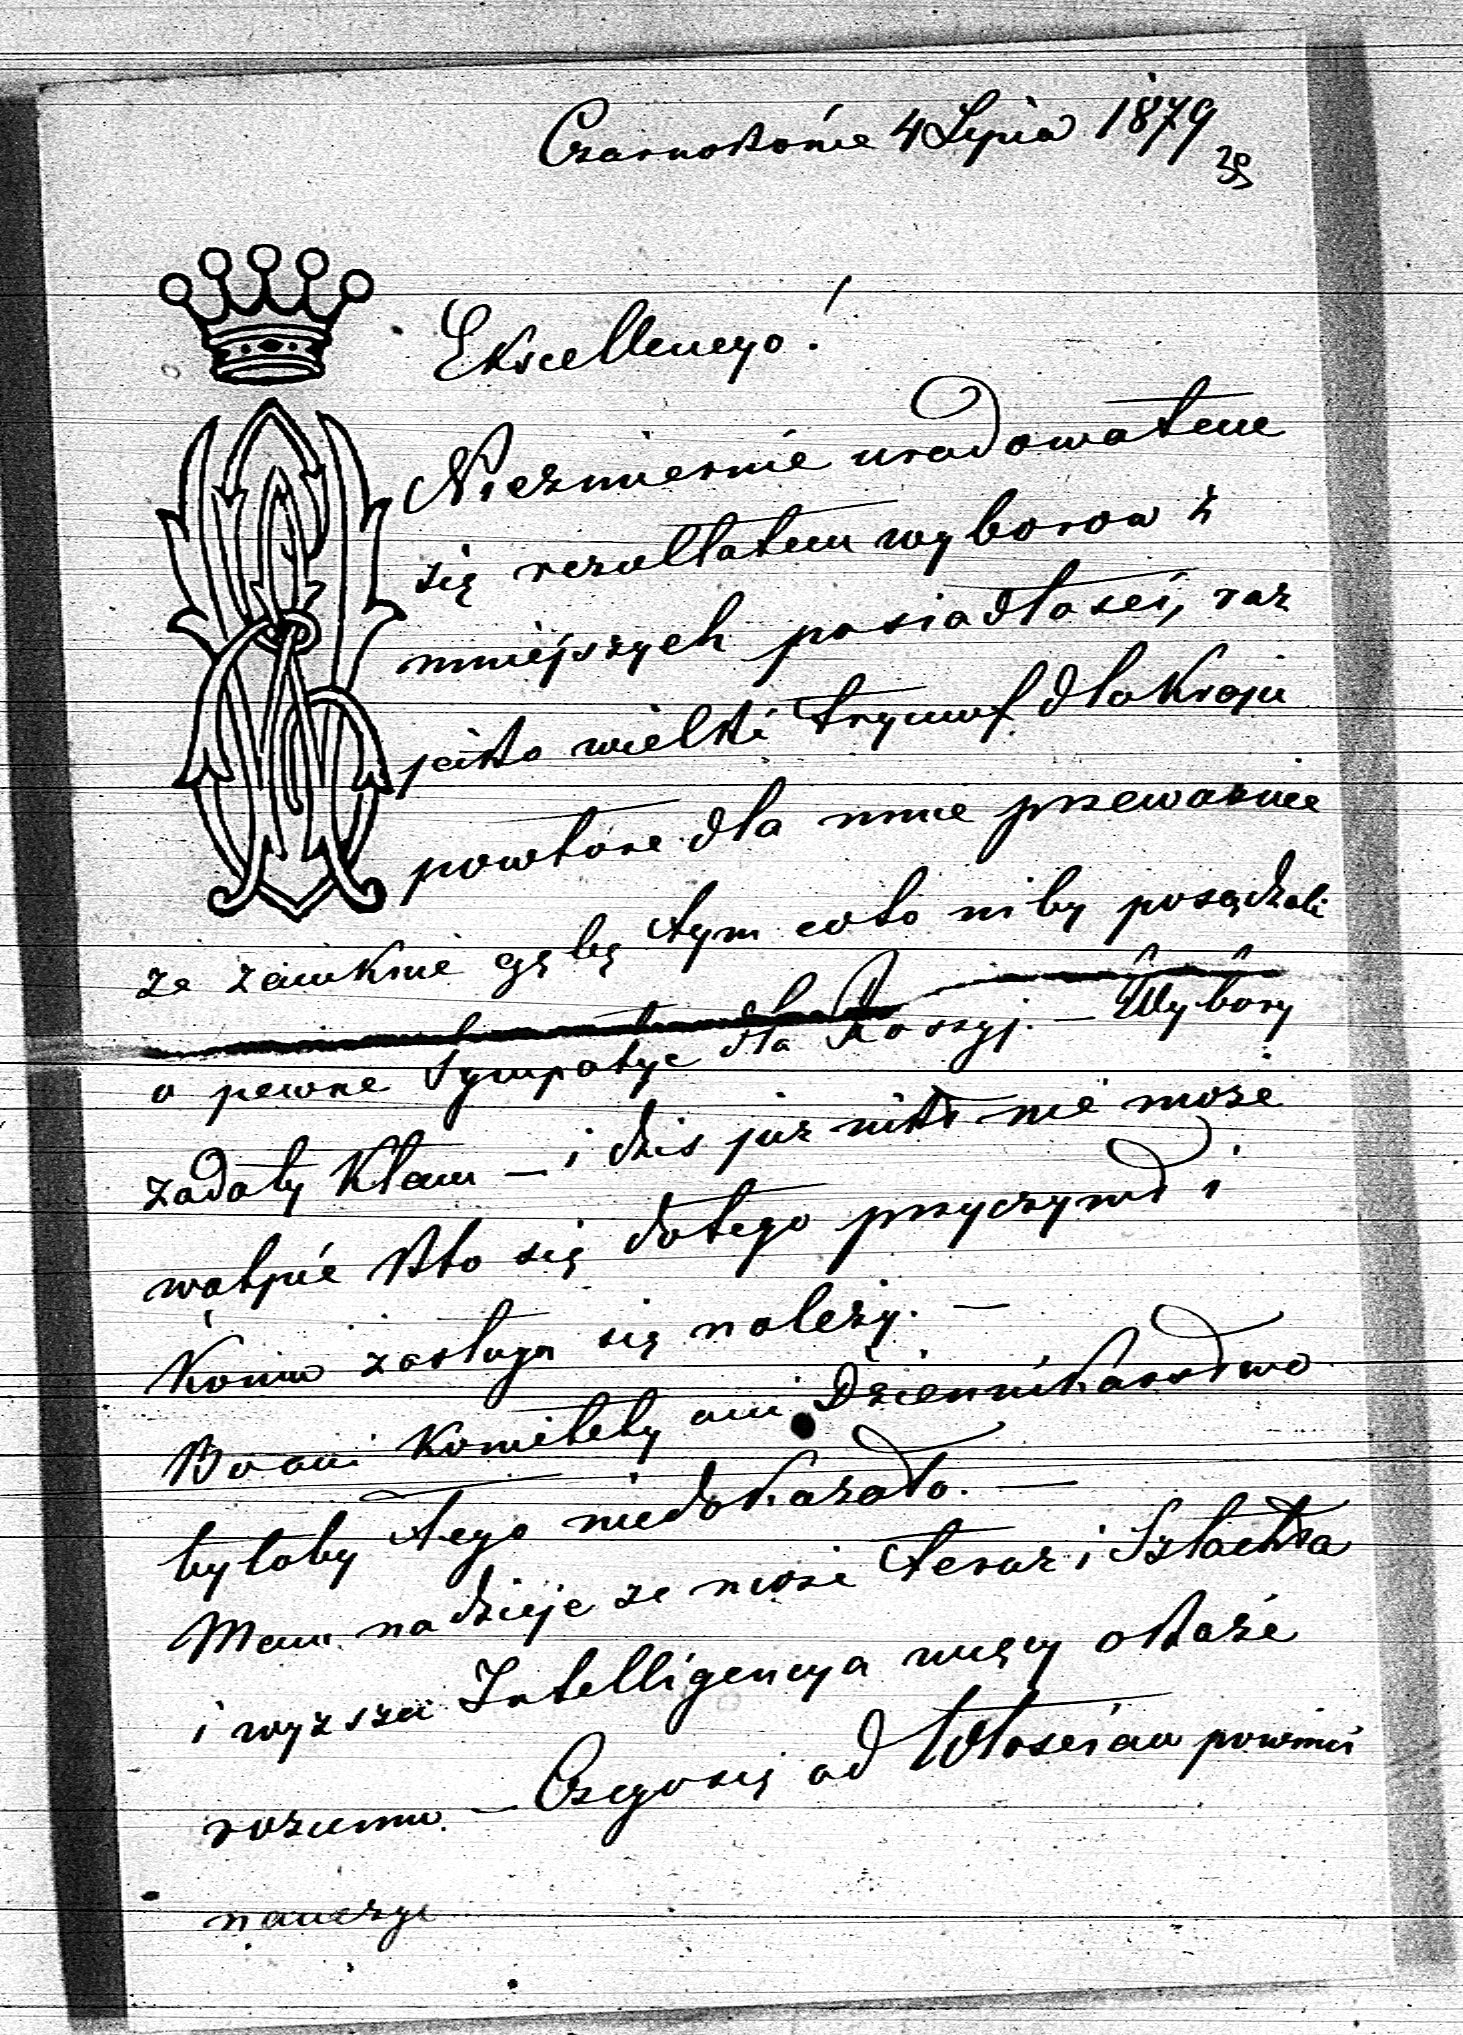 Czarnokońce 4 Lipca 1879
39
Ekscellencyo!
Niezmiernie uradowałem
się rezultatem wyborow z
mniejszych posiadłości, raz
jako wielki tryumf dla Kraju
powtóre dla mnie przeważnie
że zamknie gębę tym co to niby posądzali
o pewne Sympatye dla Rossyj. — Wybory
zadały Kłam — i dziś już nikt nie może
wątpić Kto się do tego przyczynił i
Komu zasługa się należy. —
Bo ani Komitety ani Dziennikarstwo
byłoby tego niedokazało. —
Mam nadzieje ze może teraz i Szlachta
i wyższa Intelligencya więcy okaże
rozumu. — Czego się od Włościan powinni
nauczyć